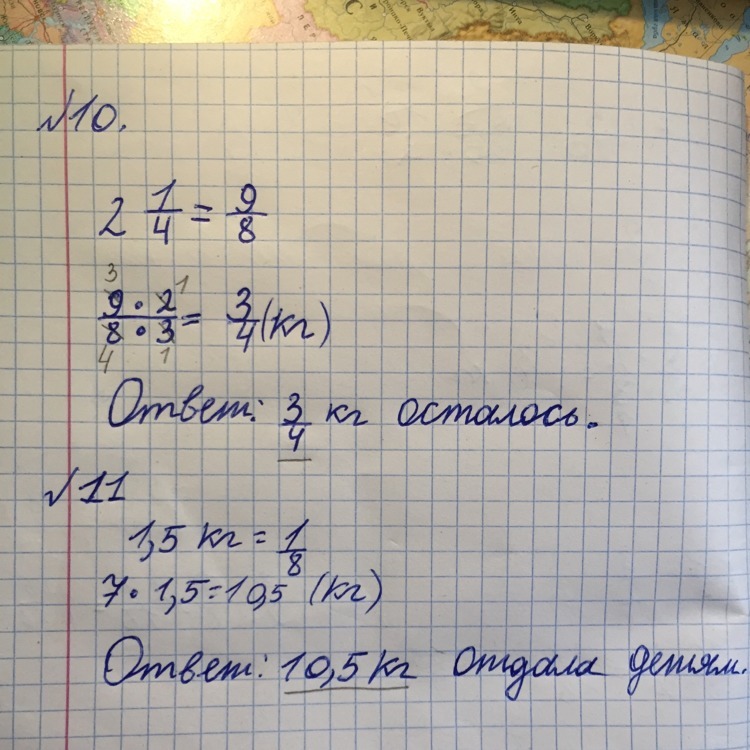 №10.
2 1/4 = 9/8
3 1
9 · 2 / 8 · 3 = 3/4 (кг)
4 1
Ответ: 3/4 кг осталось.
№11
1,5 кг = 1/8
7 · 1,5 = 10,5 (кг)
Ответ: 10,5 кг отдала детям.